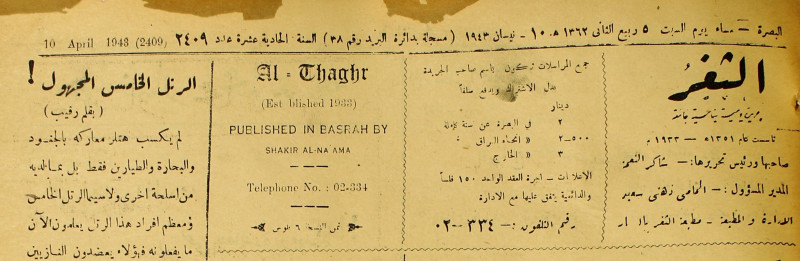 البصرة — مساء يوم السبت ٥ ربيع الثاني ١٣٦٢ هـ ١٠ - نيسان ١٩٤٣ ( مسجلة بدائرة البريد رقم ٣٨ ) السنة الحادية عشرة عدد ٢٤٠٩ 10 April 1943 (2409)
الثغر
تأسست عام ١٣٥١ هـ — ١٩٣٣ م
صاحبها ورئيس تحريرها :— شاكر النعمة
المدير المسؤول :— المحامي زهني سعيد
الادارة و المطبعة - مطبعة الثغر
جميع المراسلات تكون باسم صاحب الجريدة
بدل الاشتراك ويدفع سلفاً
دينار
٢ في البصرة عن سنة كاملة
٢-٥٠٠ « انحاء العراق »
٣ « الخارج
الاعلانات - اجرة العقد الواحد ١٥٠ فلساً
والدائمية يتفق عليها مع الادارة
رقم التلفون :— ٣٣٤-٠٢
Al - Thaghr
(Est blished 1933)
PUBLISHED IN BASRAH BY
SHAKIR AL-NA AMA
Telephone No. : 02-334
ثمن النسخة ٦ فلوس
الرتل الخامس المجهول !
( بقلم رقيب )
لم يكسب هتلر معاركه بالجنود
والبحارة والطيارين فقط بل بما لديه
من اسلحة اخرى ولاسيما الرتل الخامس
ومعظم افراد هذا الرتل يعلمون الآن
ما يفعلونه فهؤلاء يعضدون النازيين